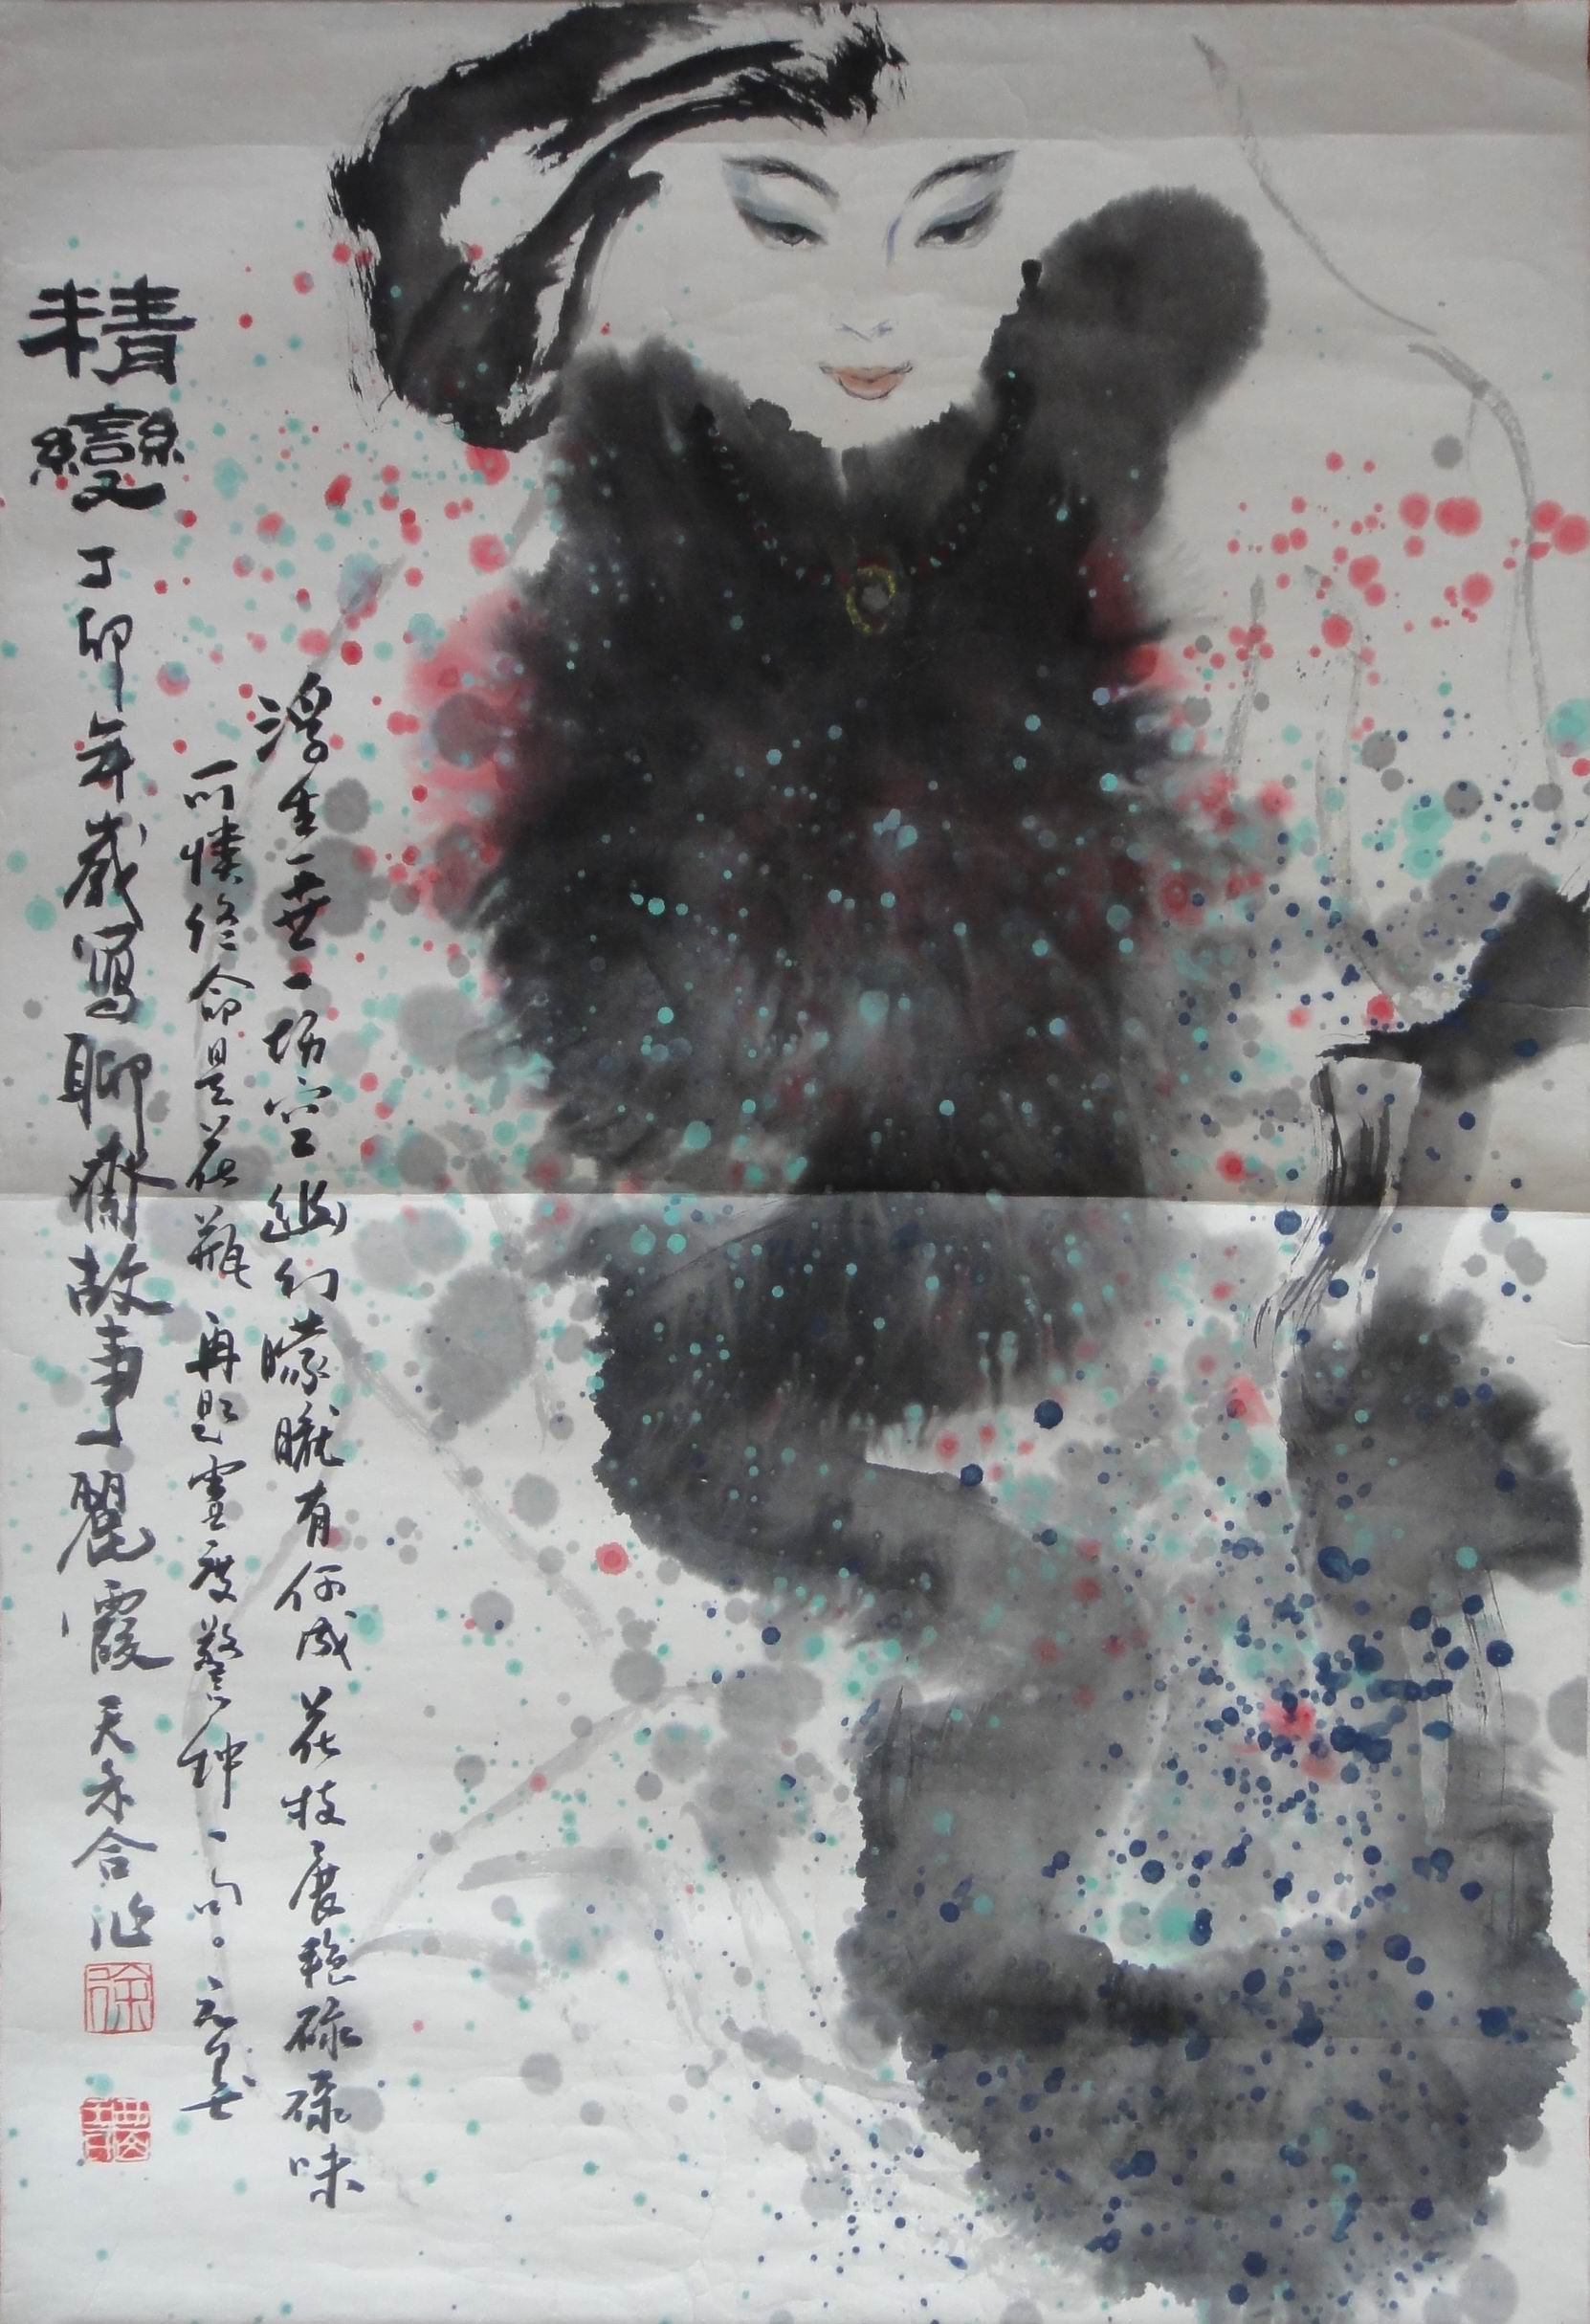 浮生一世一場空幻朦朧有何成花枝展艷碌碌味
可憐終命是花瓶 再題靈度警鐘一句。
精變 丁卯年歲寫聊齋故事麗霞天禾合作
徐